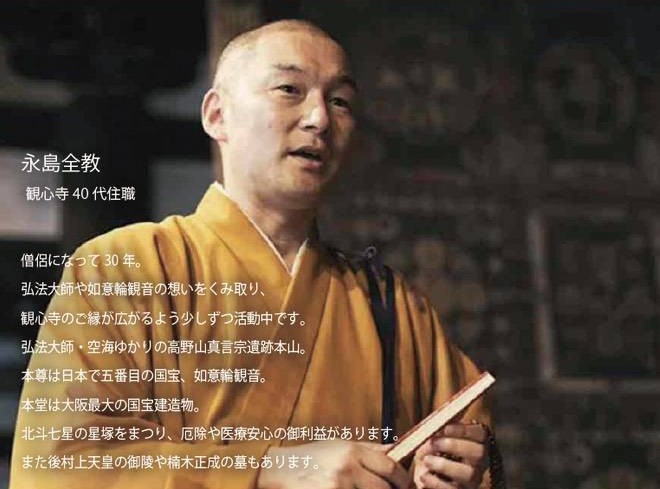 永島全教
観心寺 40 代住職
僧侶になって 30 年。
弘法大師や如意輪観音の想いをくみ取り、
観心寺のご縁が広がるよう少しずつ活動中です。
弘法大師・空海ゆかりの高野山真言宗遺跡本山。
本尊は日本で五番目の国宝、如意輪観音。
本堂は大阪最大の国宝建造物。
北斗七星の星塚をまつり、厄除や医療安心の御利益があります。
また後村上天皇の御陵や楠木正成の墓もあります。